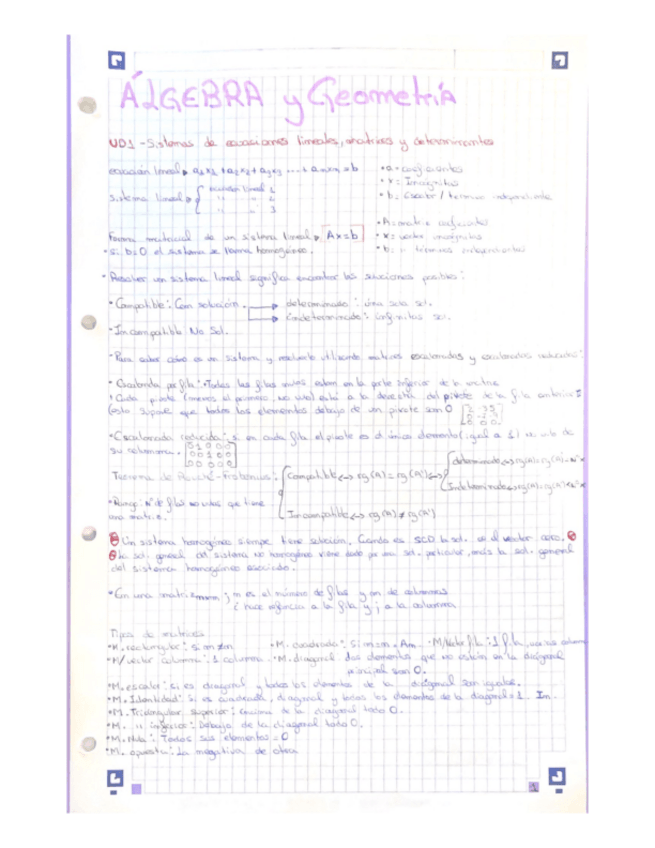 ÁLGEBRA y Geometría
UD1 - Sistemas de ecuaciones lineales, matrices y determinantes
ecuación lineal → a₁x₁ + a₂x₂ + a₃x₃ ... + aₙxₙ = b
• a = coeficientes
• x = Incógnitas
• b = Escalar / término independiente
Sistema lineal → { ecuación lineal 1
" " 2
" " 3
Forma matricial de un sistema lineal → Ax=b
• A = matriz coeficientes
• x = vector incógnitas
• b = " términos independientes
• Si b=0 el sistema se llama homogéneo.
• Resolver un sistema lineal significa encontrar las soluciones posibles:
• Compatible: Con solución. → determinado: una sola sol.
→ indeterminado: infinitas sol.
• Incompatible No Sol.
• Para saber cómo es un sistema y resolverlo utilizando matrices escalonadas y escalonadas reducidas:
• Escalonada por fila: • Todas las filas nulas estan en la parte inferior de la matriz
• Cada pivote (menos el primero, no vale) está a la derecha del pivote de la fila anterior
(esto supone que todos los elementos debajo de un pivote son 0
• Escalonada reducida: si en cada fila el pivote es el único elemento (igual a 1) no nulo de
su columna.
Teorema de Rouché-Frobenius: { Compatible ↔ rg(A) = rg(A') ↔ { determinado ↔ rg(A) = rg(A') = nº
Indeterminado ↔ rg(A) = rg(A') < nº
Incompatible ↔ rg(A) ≠ rg(A')
• Rango: nº de filas no nulas que tiene
una matriz.
Un sistema homogéneo siempre tiene solución. Cuando es SCD la sol. es el vector cero.
La sol. general del sistema no homogéneo viene dado por una sol. particular, más la sol. general
del sistema homogéneo asociado.
• En una matriz mxn; m es el número de filas y n de columnas
i hace referencia a la fila y j a la columna
Tipos de matrices
• M. rectangular: Si m≠n • M. cuadrada: Si m=n. • M/Vector fila: 1 fila, varias columnas
• M/vector columna: 1 columna • M. diagonal: los elementos que no están en la diagonal
principal son 0.
• M. escalar: si es diagonal y todos los elementos de la diagonal son iguales.
• M. Identidad: Si es cuadrada, diagonal y todos los elementos de la diagonal = 1. In.
• M. Triangular superior: encima de la diagonal todo 0.
• M. " inferior: Debajo de la diagonal todo 0.
• M. Nula: Todos sus elementos = 0
• M. opuesta: La negativa de otra
1